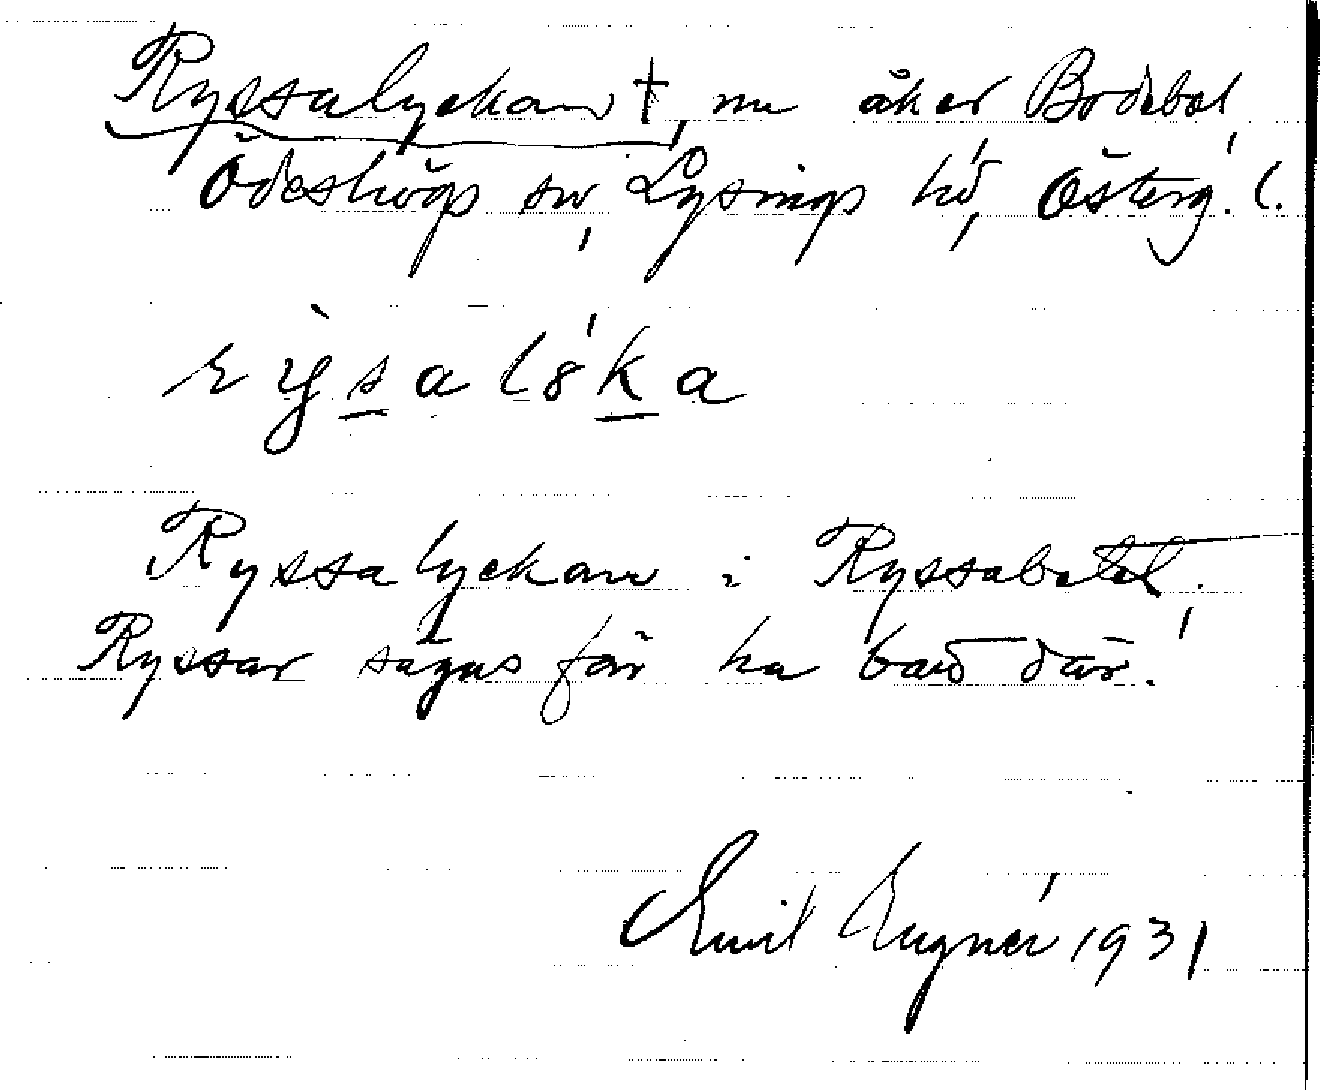 Ryssalyckan †, nu åker Bodebol,
Ödeshögs sn, Lysings hd, Österg. l.
rỳsalǿka
Ryssalyckan i Ryssabolet,
Ryssar sägas för ha bott där.
Emil Lugnér 1931